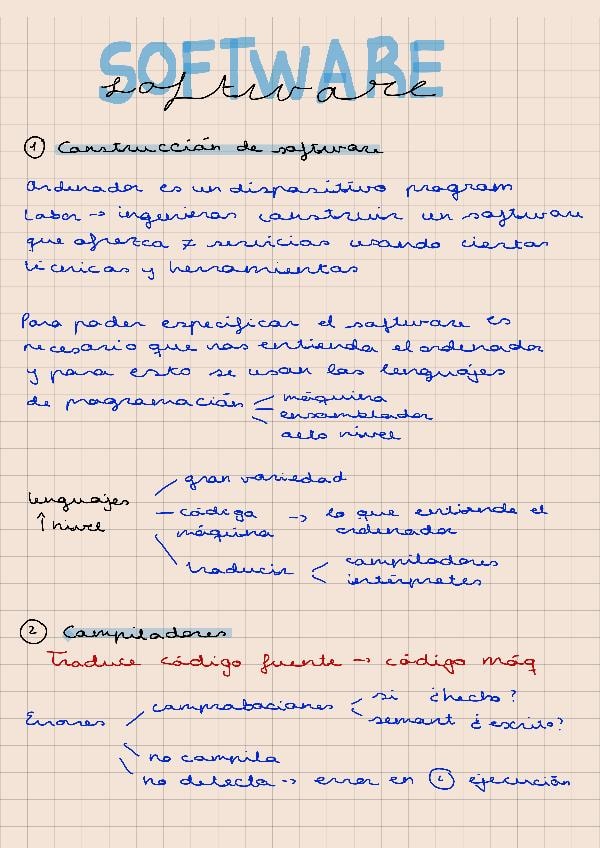 SOFTWARE
software
① Construcción de software
Ordenador es un dispositivo program
Labor → ingenieros construir un software
que ofrezca ≠ servicios usando ciertas
técnicas y herramientas
Para poder especificar el software es
necesario que nos entienda el ordenador
y para esto se usan los lenguajes
de programación máquina
ensamblador
alto nivel
lenguajes ↑ nivel
gran variedad
código máquina → lo que entiende el ordenador
traducir
compiladores
intérpretes
② Compiladores
Traduce código fuente → código máq
Errores
comprobaciones
si ¿hecho?
semant ¿escrito?
no compila
no detecta → error en ejecución